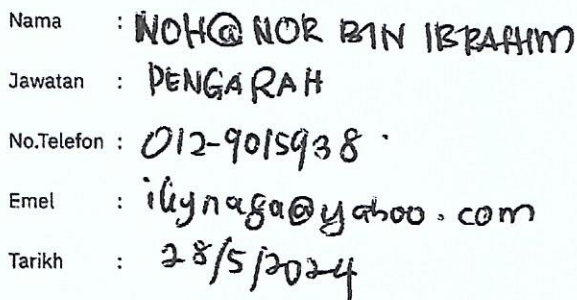 Nama : NOH@NOR BIN IBRAHIM
Jawatan : PENGARAH
No.Telefon : 012-9015938
Emel : iliynaga@yahoo.com
Tarikh : 28/5/2024